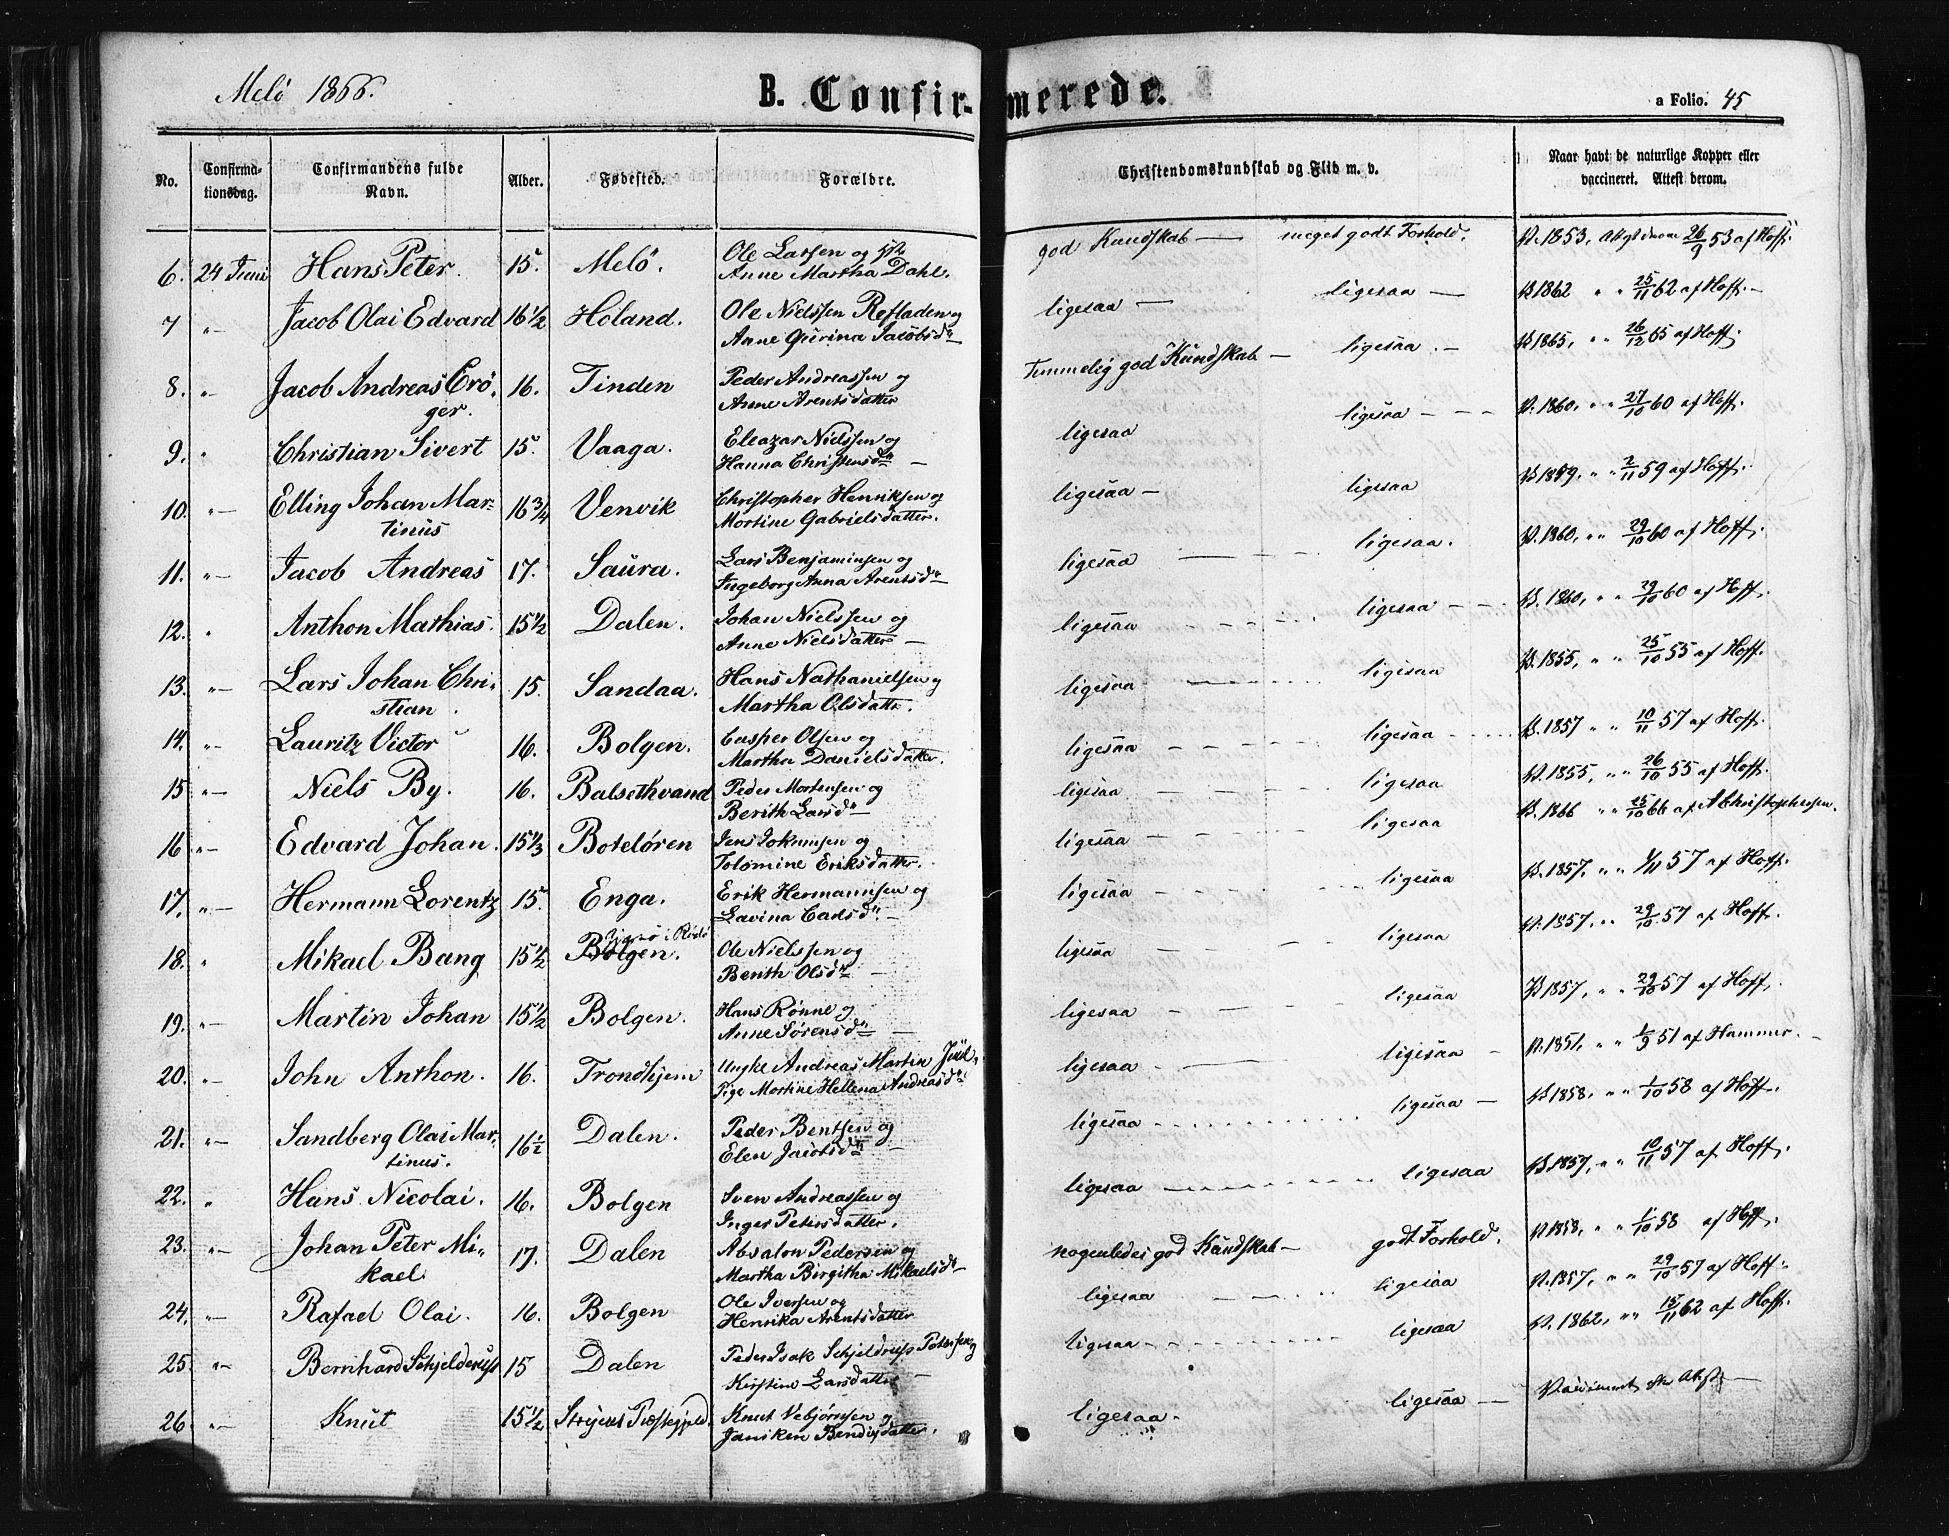 Melö 1866.
B. Confirmerede.
a Folio. 45
No. Confirmationsdag. Confirmandens fulde Navn. Alder. Fødested. Forældre. Christendomskundskab og Flid m. v. Naar havt de naturlige Kopper eller vaccineret. Attest derom.
6. 24 Juni Hans Peter. 15. Melö. Ole Larsen og
Anne Martha Dahl. god Kundskab — meget godt Forhold. V. 1853, Attest derom 26/9 53 af Hoff.
7 "— Jacob Olai Edvard 16 1/2 Holand. Ole Nielssen Refladen og
Anne Gurina Jacobsd. ligesaa — ligesaa — V. 1862 " " 25/11 62 af Hoff. —
8. "— Jacob Andreas Crö-
ger. 16. Tinden Peder Andreassen og
Anne Arentsdatter Temmelig god Kundskab — ligesaa . — V. 1865, " " 26/12 65 af Hoff.
9. " Christian Sivert 15. Vaaga. Eleazar Nielssen og
Hanna Christensd. — ligesaa ligesaa — — — V. 1860, " " 27/10 60 af Hoff.
10. "— Elling Johan Mar-
tinus 16 3/4 Venvik Christopher Henriksen og
Mortine Gabrielsdatter. ligesaa — ligesaa V. 1859. " " 2/11 59 af Hoff.
11. "— Jacob Andreas 17. Saura. Lars Benjaminsen og
Ingeborg Anna Arentsd. ligesaa — ligesaa. V. 1860, " " 29/10 60 af Hoff.
12. " Anthon Mathias. 15 1/2 Dalen. Johan Nielssen og
Anne Nielsdatter — ligesaa ligesaa — — V. 1860, " " 29/10 60 af Hoff.
13. "— Lars Johan Chri-
stian. 15. Sandaa. Hans Nathanielsen og
Martha Olsdatter. ligesaa — ligesaa V. 1855, " " 25/10 55 af Hoff.
14. "— Lauritz Victor 16. Bolgen. Casper Olsen og
Martha Danielsdatter. ligesaa ligesaa V. 1857 " " 10/11 57 af Hoff.
15 "— Niels By. 16. Balsethvand Peder Mortensen og
Berith Larsd. ligesaa ligesaa V. 1855, " " 26/10 55 af Hoff.
16 "— Edvard Johan. 15 1/3 Botelören Jens Jokumsen og
Tolomine Eriksdatter. ligesaa ligesaa V. 1866 " " 25/10 66 af A Christophersen.
17. "— Hermann Lorentz 15. Enga. Erik Hermannsen og
Lavina Carlsd. — ligesaa ligesaa V. 1857, " " 1/11 57 af Hoff.
18. " Mikael Bang 15 1/2 Bolgen. i Rödö Ole Nielssen og
Berith Olsd. — ligesaa ligesaa V. 1857, " " 29/10 57 af Hoff.
19. "— Martin Johan 15 1/2 Bolgen. Hans Rønne og
Anne Sørensd. — ligesaa ligesaa V. 1857, " " 29/10 57 af Hoff.
20. "— John Anthon. 16. Trondhjem Ungke Andreas Martin Juul,
Pige Mortine Hellena Andreasd. ligesaa — ligesaa — V. 1851, " " 1/9 51 af Hammer. —
21. "— Sandberg Olai Mar-
tinus. 16 1/2 Dalen. Peder Bentsen og
Elen Jacobsd. — ligesaa ligesaa — V. 1858, " " 1/10 58 af Hoff.
22. " Hans Nicolai. 16. Bolgen Sven Andreassen og
Inger Petersdatter. ligesaa ligesaa V. 1857, " " 10/11 57 af Hoff.
23. "— Johan Peter Mi-
kael 17. Dalen Absalon Pedersen og
Martha Birgitha Mikaelsd. — nogenledes god Kundskab — godt Forhold. V. 1858, " " 1/10 58 af Hoff.
24. "— Rafael Olai. 16. Bolgen Ole Iversen og
Henrika Arentsdatter ligesaa ligesaa V. 1857, " " 29/10 57 af Hoff.
25. "— Bernhard Schjelderup 15 Dalen Peder Isak Schjeldrup Petersen og
Kirstine Larsdatter — ligesaa ligesaa V. 1862, " " 15/11 62 af Hoff.
26 "— Knut 15 1/2 Stryens Præstegjeld. Knut Vebjørnsen og
Janiken Bendixdatter. ligesaa. ligesaa — Vaccineret efter Attest —